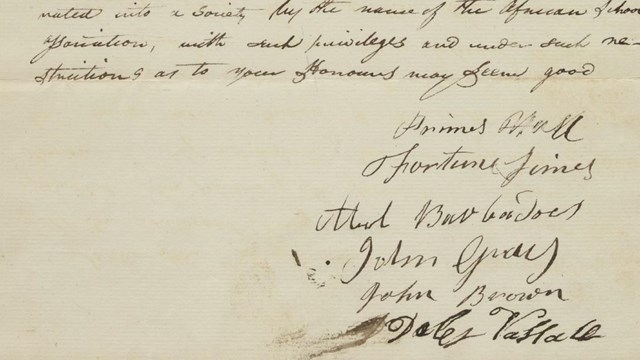 rated into a Society by the name of the African School
Association, with such privileges and under such re-
strictions as to your Honours may Seem good
Primes Hall
Fortune Simes
Abel Barbadoes
John Gray
John Brown
Vassall